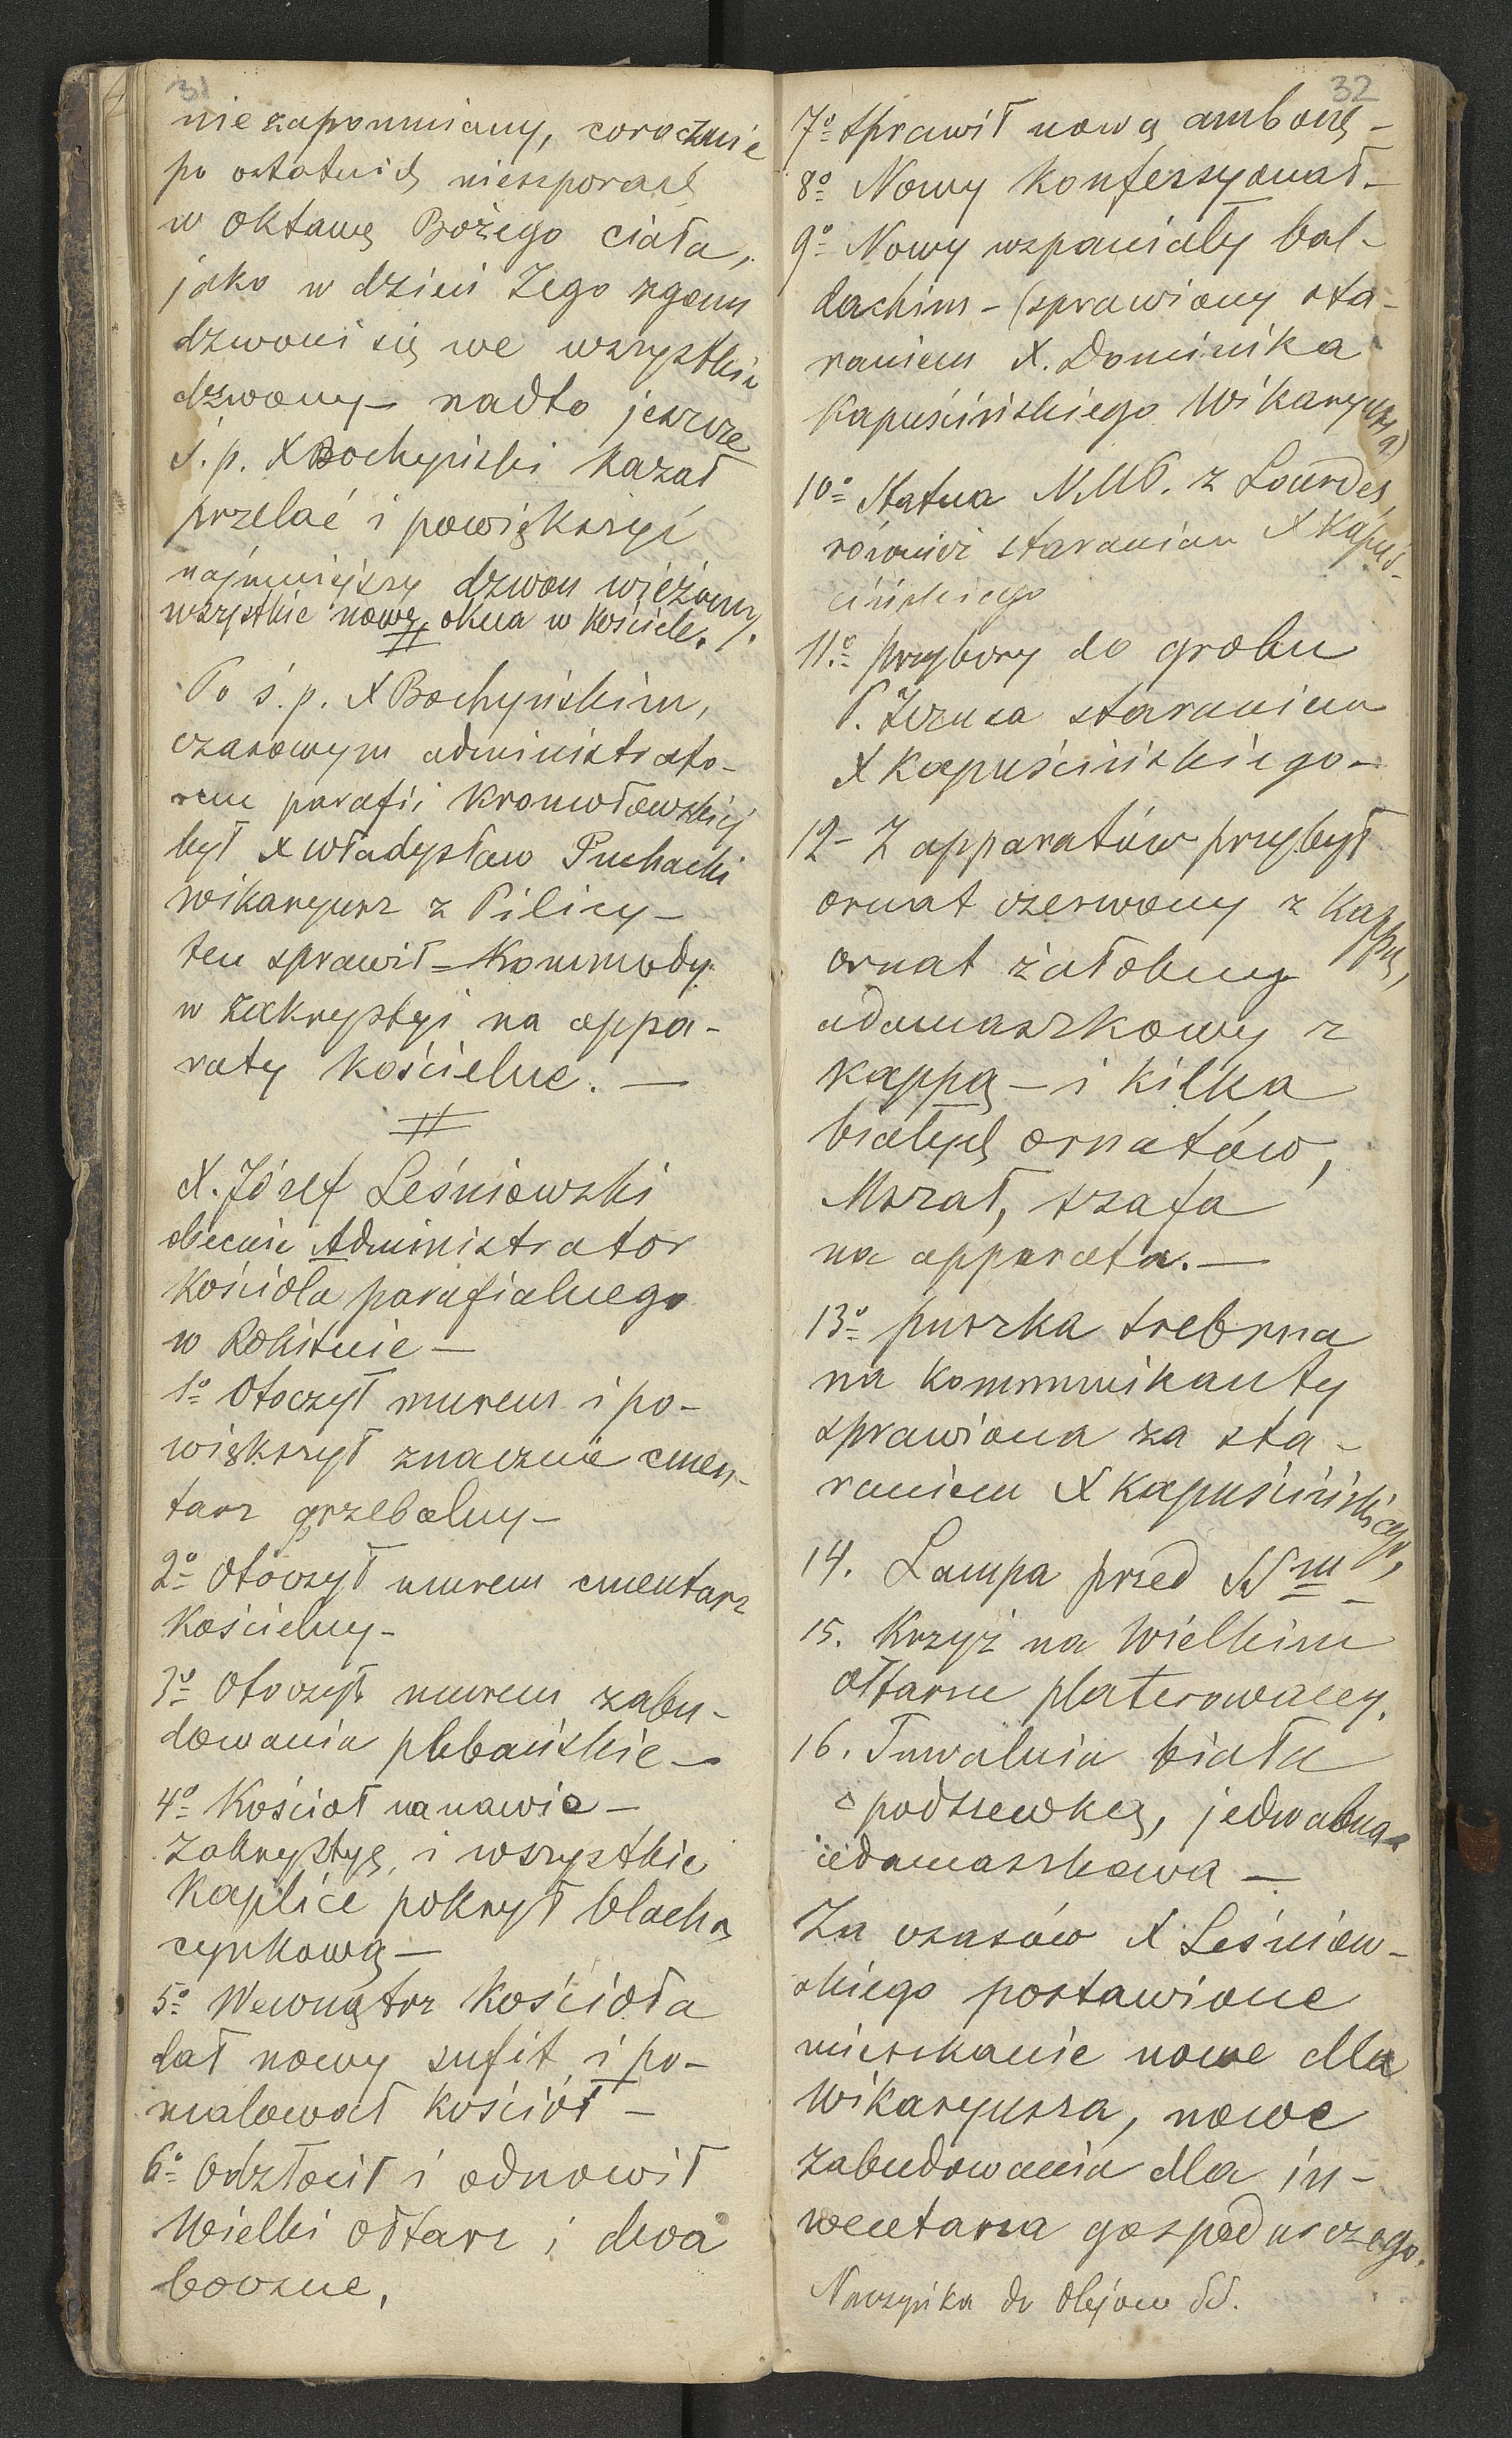 31
niezapomniany, corocznie
po ostatnich nieszporach
w oktawę Bożego ciała,
jako w dzień Jego zgonu
dzwoni się we wszystkie
dzwony – nadto jeszcze
ś. p. X Bochyński kazał
przelać i powiększyć
najmniejszy dzwon wieżowy.
wszystkie nowe okna w kościele.
Po ś. p. X Bochyńskim,
czasowym administrato-
rem parafii Kromołowskiej
był X Władysław Puchacki
wikaryusz z Pilicy –
ten sprawił – Kommody
w zakrystyi na appa-
raty kościelne. –
X. Józef Leśniowski
obecnie Administrator
kościoła parafialnego
w Rokitnie –
1º Otoczył murem i po-
większył znacznie cmen-
tarz grzebalny –
2º Otoczył murem cmentarz
kościelny –
3º Otoczył murem zabu-
dowania plebańskie –
4º Kościoł na nawie –
Zakrystyę, i wszystkie
kaplice pokrył blachą
cynkową –
5º Wewnątrz kościoła
dał nowy sufit i po-
malował kościół –
6º Odzłocił i odnowił
Wielki ołtarz i dwa
boczne.
32
7º Sprawił nową ambonę –
8º Nowy konfessyonał –
9º Nowy wspaniały bal-
dachim – (sprawiony sta-
raniem X. Dominika
Kapuścińskiego Wikaryusza)
10º Statua NMP. z Lourdes,
również staraniem X Kapuś-
cińskiego
11º przybory do grobu
P. Jezusa staraniem
X Kapuścińskiego –
12 – Z apparatów przybył
ornat czerwony z kappą,
ornat żałobny
adamaszkowy z
kappą – i kilka
białych ornatów,
Mszał, szafa
na apparata. –
13º puszka srebrna
na kommunikanty
sprawiona za sta-
raniem X Kapuścińskiego,
14. Lampa przed SSm –
15. Krzyż na Wielkim
ołtarzu platerowany.
16. Tuwalnia biała
z podszewką, jedwabna
adamaszkowa –
Za czasów X Leśniow-
skiego postawione
mieszkanie nowe dla
Wikaryusza, nowe
zabudowania dla in-
wentarza gospodarczego.
Naczyńka do Olejów SS.